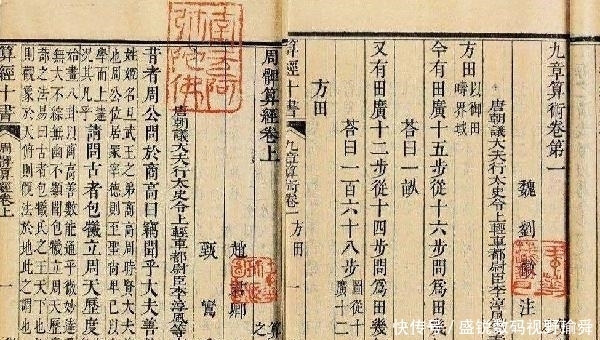 九章算術卷第一
魏 劉徽 注
唐朝議大夫行太史令上輕車都尉臣李淳風等
方田 以御田
疇界域
今有田廣十五步從十六步問爲田幾
荅曰一畝
又有田廣十二步從十四步問爲田幾
荅曰一百六十八步 圖從十
廣十二
方田
算經十書 九章算術卷一 方田 一
南无阿
弥陀佛
周髀算經卷上
趙君卿
甄鸞
唐朝議大夫行太史令上輕車都尉臣李淳風等
昔者周公問於商高曰竊聞乎大夫善
姓姬名旦武王之弟商高周時賢大夫
也周公位居冢宰德則至聖尚卑已以
學而上達
況其凡乎
請問古者包犧立周天歷度
始畫八卦以商高善數能通乎微妙達
無大不綜無幽不顯聞包犧立周天歷
部之法易曰古者包犧氏之王天下也
則觀象於天俯則觀法於地此之謂也
算經十書 周髀算經卷上 一
快传号/盛锐数码视界瑜舜